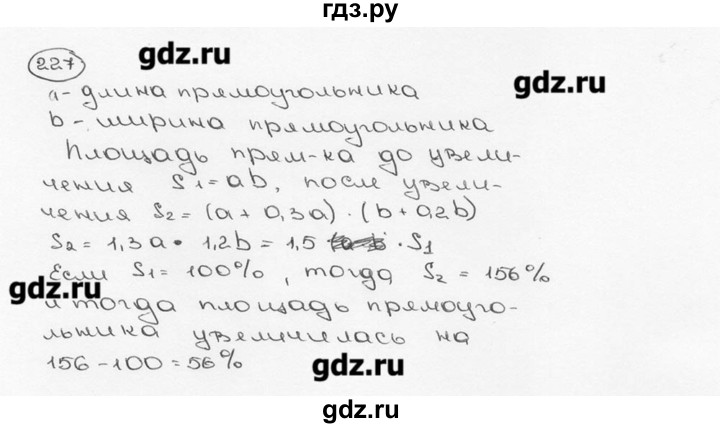 гдз.ру
227
gdz.ru
а - длина прямоугольника
gdz.ru
b - ширина прямоугольника
Площадь прям-ка до увели-
чения S1 = ab, после увели-
чения S2 = (a + 0,3a) · (b + 0,2b)
S2 = 1,3a · 1,2b = 1,5 · S1
Если S1 = 100%, тогда S2 = 156%
gdz.ru
и тогда площадь прямоуго-
льника увеличилась на
156 - 100 = 56%
gdz.ru
gdz.ru